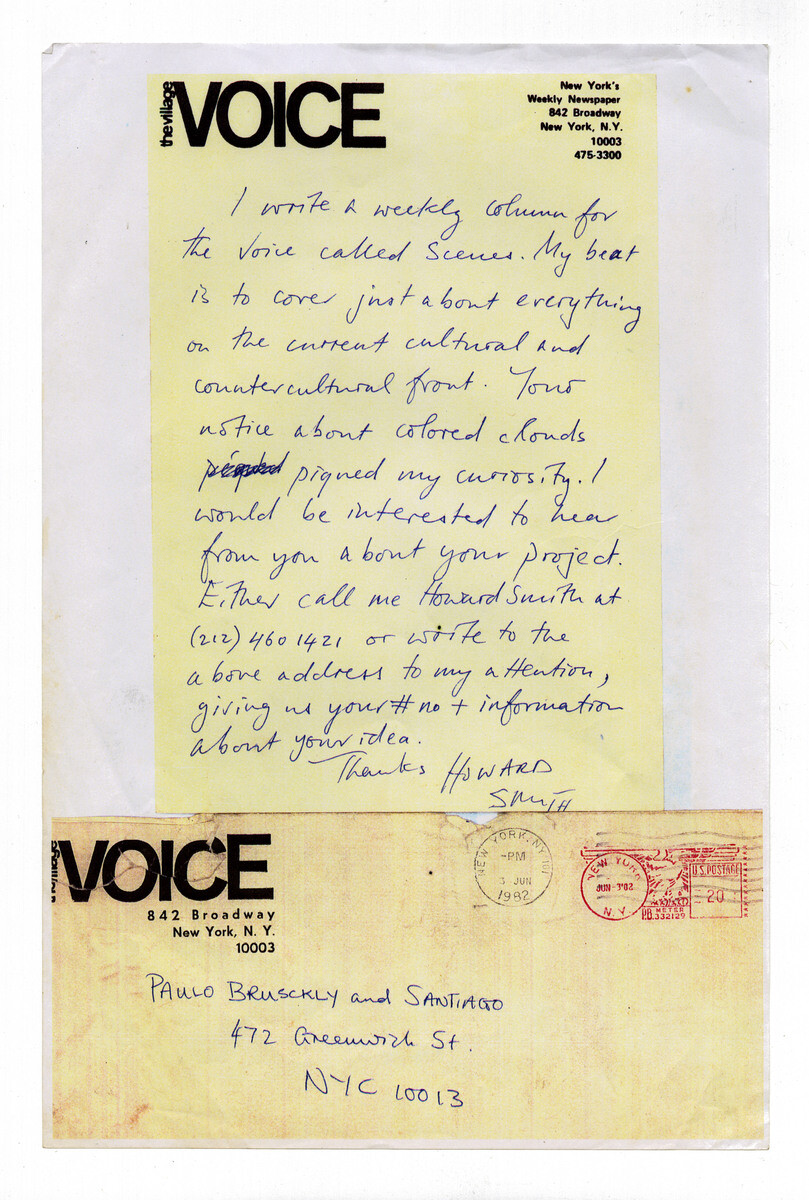 the village VOICE
New York's
Weekly Newspaper
842 Broadway
New York, N.Y.
10003
475-3300
I write a weekly column for
the Voice called Scenes. My beat
is to cover just about everything
on the current cultural and
countercultural front. Your
notice about colored clouds
piqued my curiosity. I
would be interested to hear
from you about your project.
Either call me Howard Smith at
(212) 460 1421 or write to the
above address to my attention,
giving us your # no + information
about your idea.
Thanks HOWARD
SMITH
the village VOICE
842 Broadway
New York, N. Y.
10003
NEW YORK, NY
-PM
3 JUN
1982
NEW YORK
JUN-3'82
N.Y.
U.S. POSTAGE
20
P.B. METER
332129
PAULO BRUSCKLY and SANTIAGO
472 Greenwich St.
NYC 10013